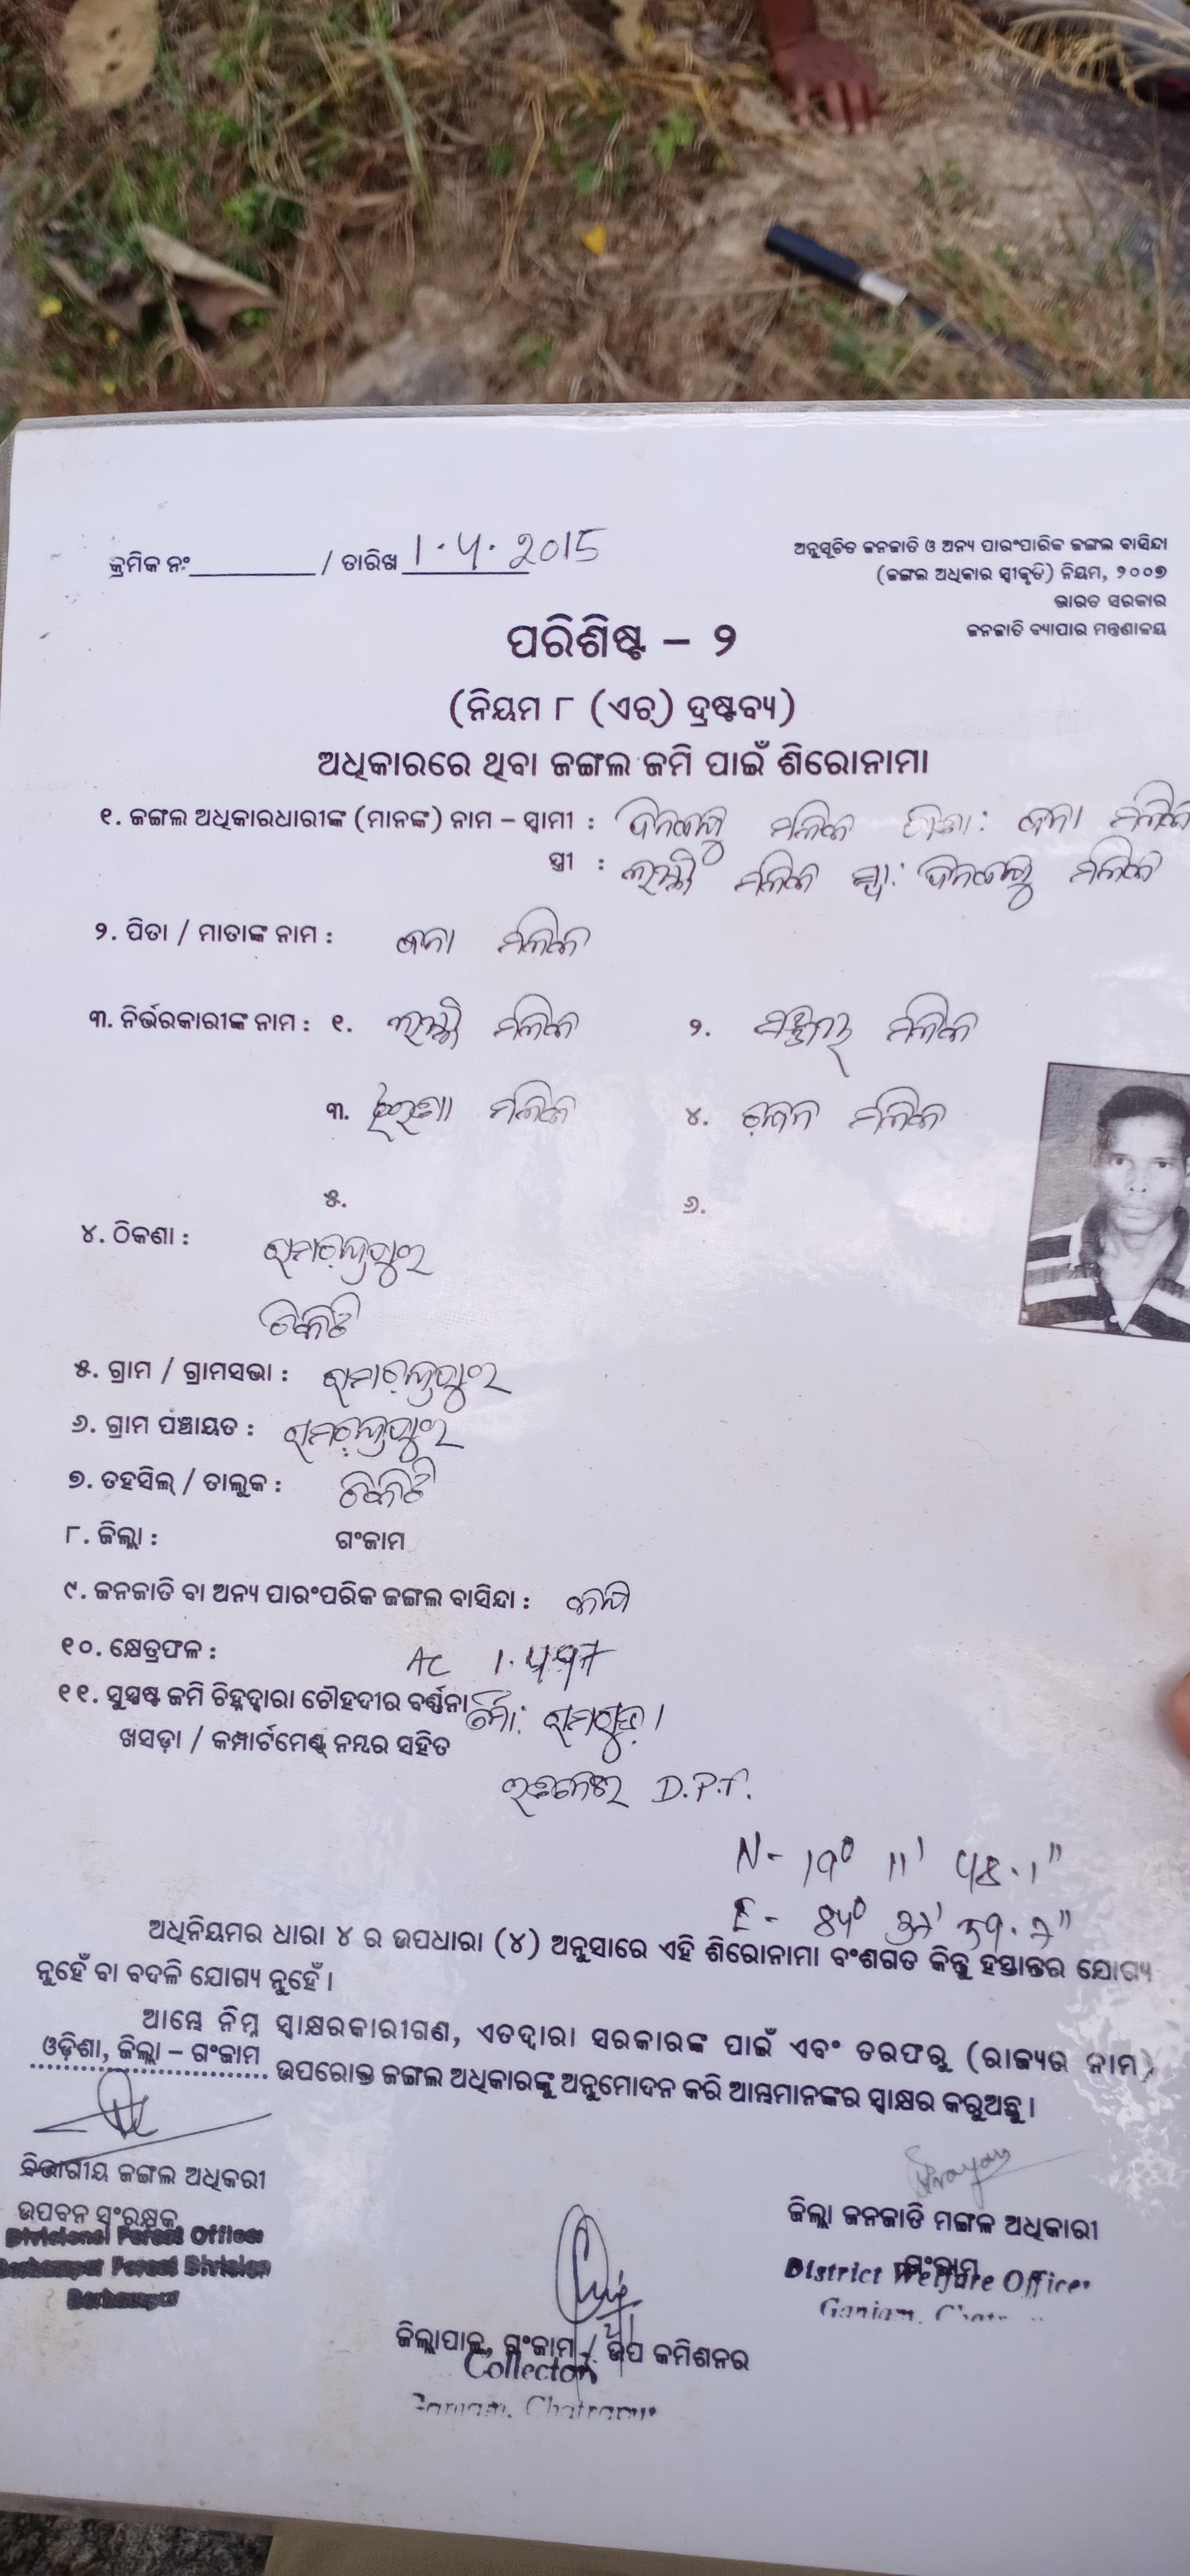 କ୍ରମିକ ନଂ / ତାରିଖ 1.4.2015
ଅନୁସୂଚିତ ଜନଜାତି ଓ ଅନ୍ୟ ପାରଂପାରିକ ଜଙ୍ଗଲ ବାସିନ୍ଦା
(ଜଙ୍ଗଲ ଅଧିକାର ସ୍ୱୀକୃତି) ନିୟମ, ୨୦୦୭
ଭାରତ ସରକାର
ଜନଜାତି ବ୍ୟାପାର ମନ୍ତ୍ରଣାଳୟ
ପରିଶିଷ୍ଟ – ୨
(ନିୟମ ୮ (ଏଚ୍) ଦ୍ରଷ୍ଟବ୍ୟ)
ଅଧିକାରରେ ଥିବା ଜଙ୍ଗଲ ଜମି ପାଇଁ ଶିରୋନାମା
୧. ଜଙ୍ଗଲ ଅଧିକାରଧାରୀଙ୍କ (ମାନଙ୍କ) ନାମ – ସ୍ୱାମୀ : ମଳିକ ପିତା: ମଳିକ
ସ୍ତ୍ରୀ : ଲକ୍ଷ୍ମୀ ମଳିକ ସ୍ୱା: ମଳିକ
୨. ପିତା / ମାତାଙ୍କ ନାମ : ମଳିକ
୩. ନିର୍ଭରକାରୀଙ୍କ ନାମ : ୧. ଲକ୍ଷ୍ମୀ ମଳିକ ୨. ମଳିକ
୩. ମଳିକ ୪. ମଳିକ
୫. ୬.
୪. ଠିକଣା : ରାମଚନ୍ଦ୍ରପୁର
ଚିକିଟି
୫. ଗ୍ରାମ / ଗ୍ରାମସଭା : ରାମଚନ୍ଦ୍ରପୁର
୬. ଗ୍ରାମ ପଞ୍ଚାୟତ : ରାମଚନ୍ଦ୍ରପୁର
୭. ତହସିଲ୍ / ତାଲୁକ : ଚିକିଟି
୮. ଜିଲ୍ଲା : ଗଂଜାମ
୯. ଜନଜାତି ବା ଅନ୍ୟ ପାରଂପରିକ ଜଙ୍ଗଲ ବାସିନ୍ଦା :
୧୦. କ୍ଷେତ୍ରଫଳ : AC
୧୧. ସୁସ୍ପଷ୍ଟ ଜମି ଚିହ୍ନଦ୍ୱାରା ଚୌହଦୀର ବର୍ଣ୍ଣନା
ଖସଡ଼ା / କମ୍ପାର୍ଟମେଣ୍ଟ ନମ୍ବର ସହିତ
D.P.F.
N- 19° 11' 48.1"
E -
ଅଧିନିୟମର ଧାରା ୪ ର ଉପଧାରା (୪) ଅନୁସାରେ ଏହି ଶିରୋନାମା ବଂଶଗତ କିନ୍ତୁ ହସ୍ତାନ୍ତର ଯୋଗ୍ୟ
ନୁହେଁ ବା ବଦଳି ଯୋଗ୍ୟ ନୁହେଁ ।
ଆମ୍ଭେ ନିମ୍ନ ସ୍ୱାକ୍ଷରକାରୀଗଣ, ଏତଦ୍ଦ୍ୱାରା ସରକାରଙ୍କ ପାଇଁ ଏବଂ ତରଫରୁ (ରାଜ୍ୟର ନାମ)
ଓଡ଼ିଶା, ଜିଲ୍ଲା – ଗଂଜାମ ଉପରୋକ୍ତ ଜଙ୍ଗଲ ଅଧିକାରଙ୍କୁ ଅନୁମୋଦନ କରି ଆମ୍ଭମାନଙ୍କର ସ୍ୱାକ୍ଷର କରୁଅଛୁ ।
ବିଭାଗୀୟ ଜଙ୍ଗଲ ଅଧିକରୀ
ଉପବନ ସଂରକ୍ଷକ
Divisional Forest Officer
Berhampur Forest Division
Berhampur
ଜିଲ୍ଲା ଜନଜାତି ମଙ୍ଗଳ ଅଧିକାରୀ
ଗଂଜାମ
District Welfare Officer
Ganjam,
ଜିଲ୍ଲାପାଳ, ଗଂଜାମ / ଉପ କମିଶନର
Collector
Ganjam, Chatrapur